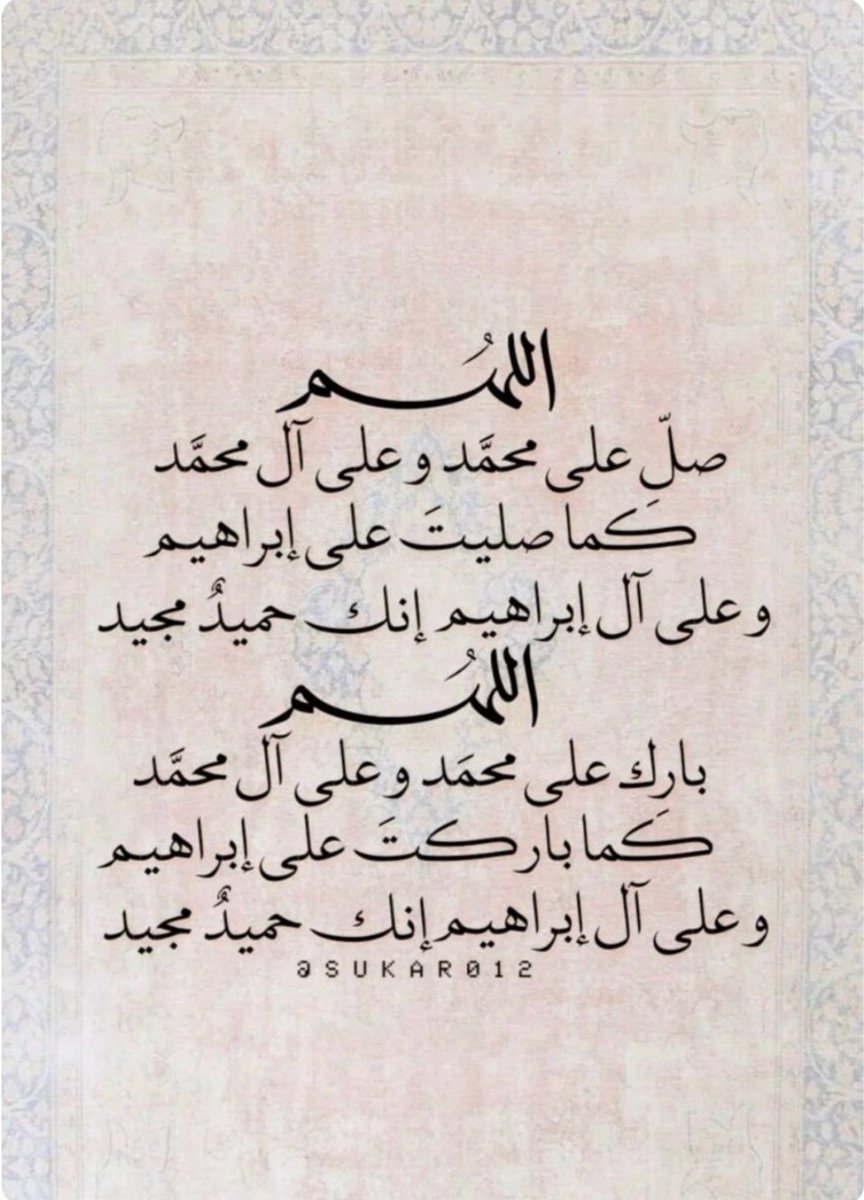 اللهُم
صلِّ على محمَّد وعلى آل محمَّد
كَما صليتَ على إبراهيم
وعلى آل إبراهيم إنك حميدٌ مجيد
اللهُم
بارِك على محمَد وعلى آل محمَّد
كَما باركتَ على إبراهيم
وعلى آل إبراهيم إنك حميدٌ مجيد
@SUKAR012